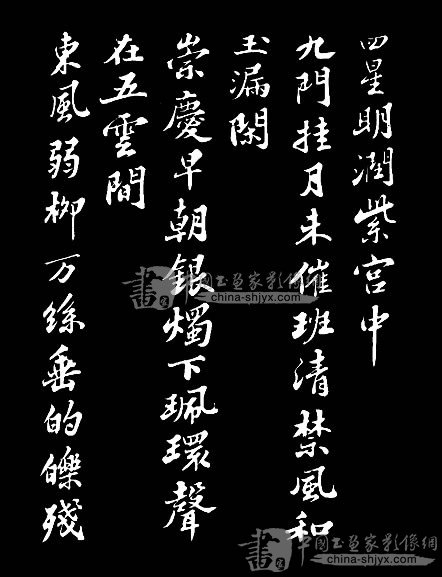 四星明潤紫宮中
九門挂月未催班清禁風和
玉漏閑
崇慶早朝銀燭下珮環聲
在五雲間
東風弱柳万絲垂的皪殘
書 中國书画家影像網
china-shjyx.com
書 中國书画家影像網
china-shjyx.com